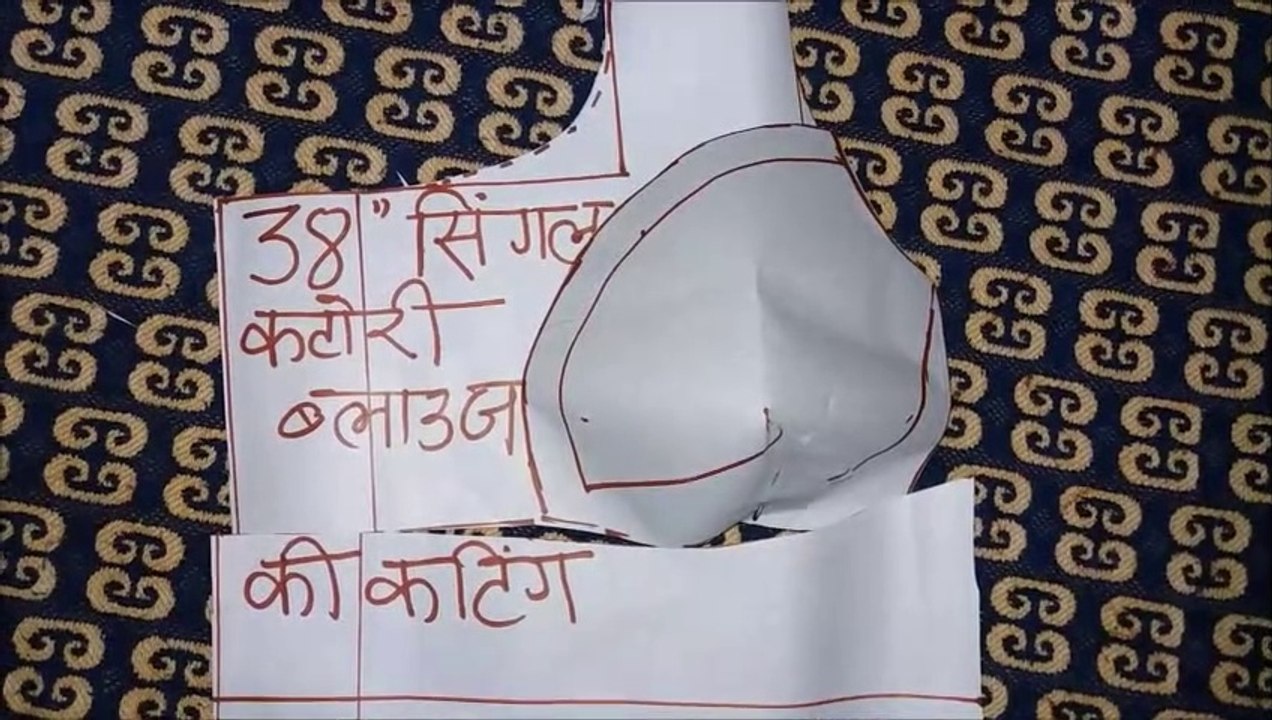 38" सिंगल
कटोरी
ब्लाउज
की कटिंग